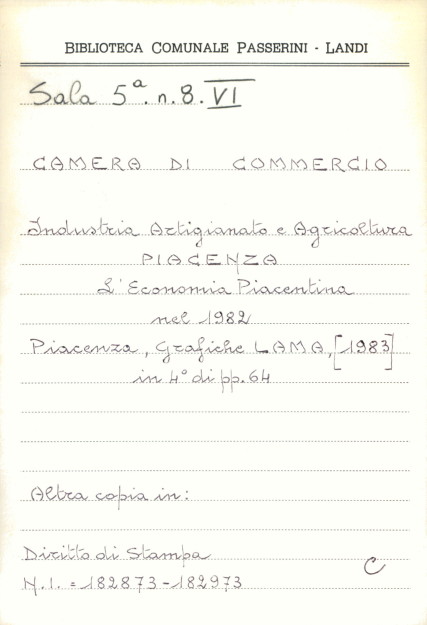 BIBLIOTECA COMUNALE PASSERINI - LANDI
Sala 5ª. n. 8. VI
CAMERA DI COMMERCIO
Industria Artigianato e Agricoltura
PIACENZA
L'Economia Piacentina
nel 1982
Piacenza, Grafiche LAMA, [1983]
in 4° di pp. 64
Altra copia in:
Diritto di Stampa
C
N.I. = 182873-182973